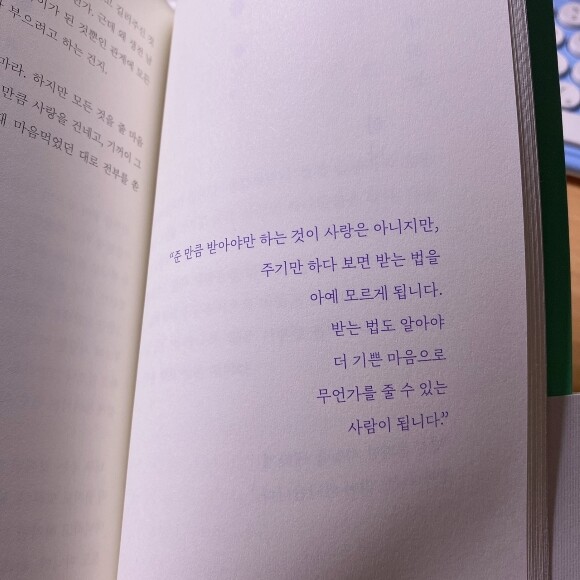 마라. 하지만 모든 것을 줄 마음
만큼 사랑을 건네고, 기꺼이 그
마음먹었던 대로 전부를 쏟
부으려고 하는 건지.
“준 만큼 받아야만 하는 것이 사랑은 아니지만,
주기만 하다 보면 받는 법을
아예 모르게 됩니다.
받는 법도 알아야
더 기쁜 마음으로
무언가를 줄 수 있는
사람이 됩니다.”